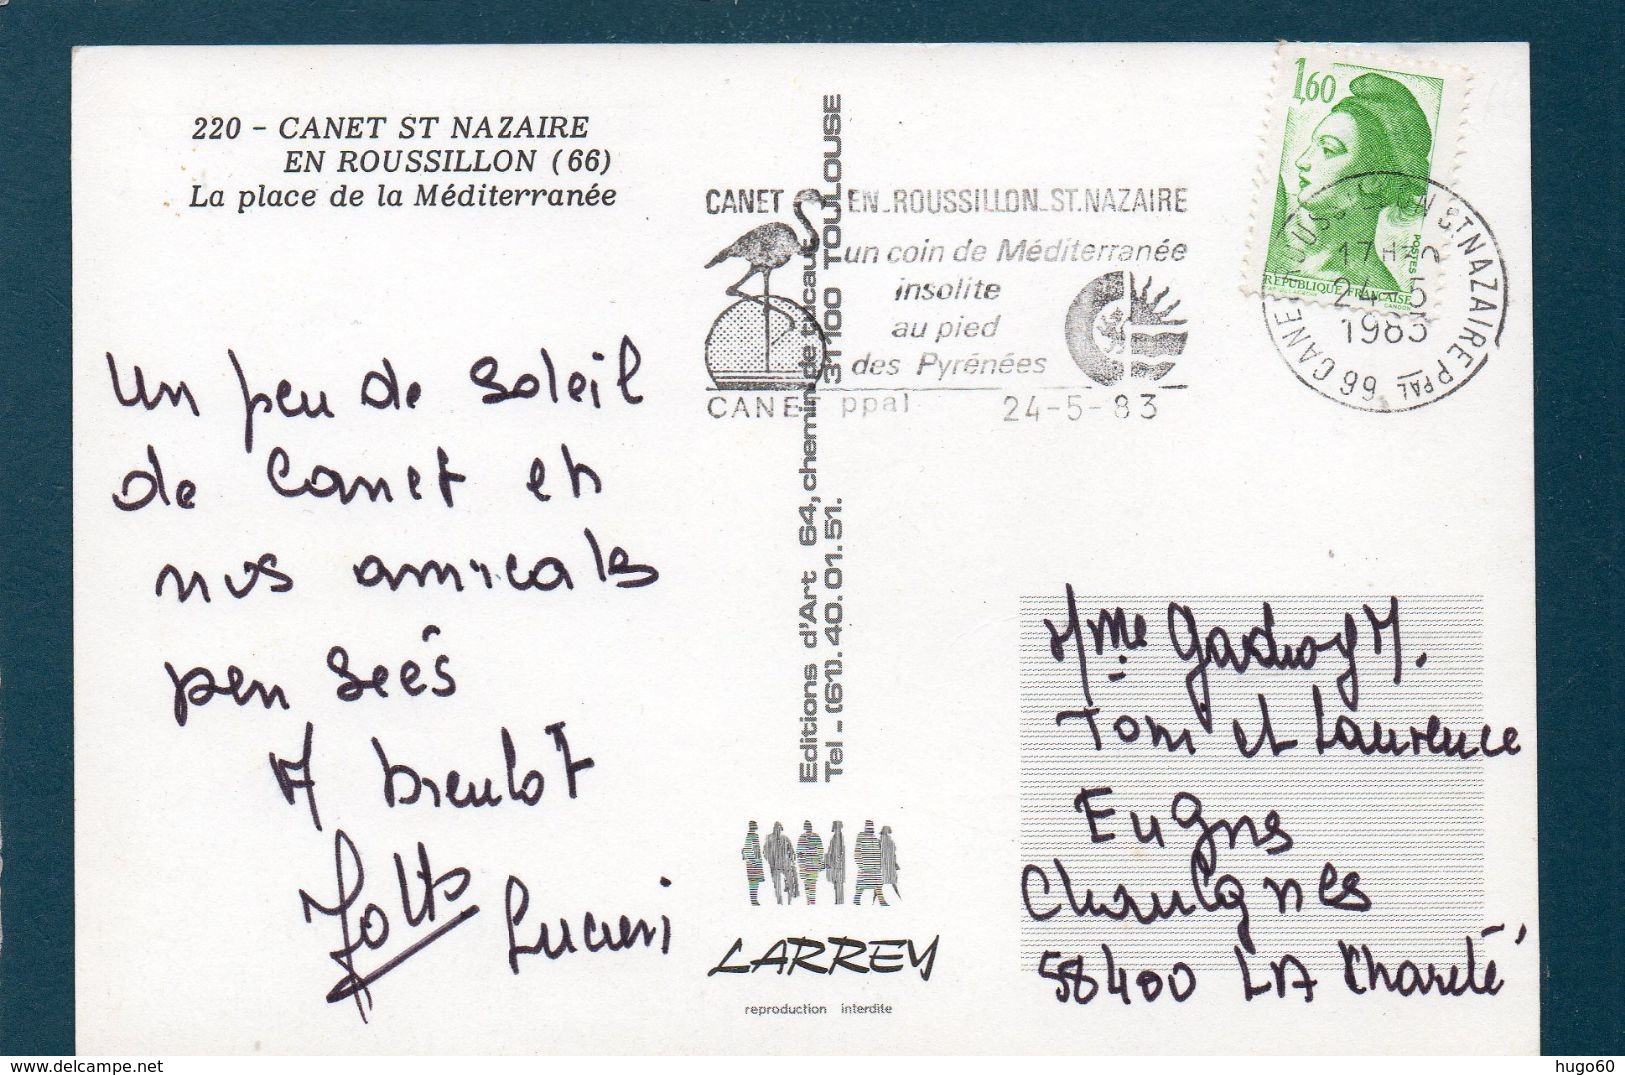 220 - CANET ST NAZAIRE
EN ROUSSILLON (66)
La place de la Méditerranée
Un peu de Soleil
de Canet et
nos amicales
pensées
A bientot
Lucien
Editions d'Art 64, chemin de 31100 TOULOUSE
Tel - (61). 40. 01. 51.
LARREY
reproduction interdite
CANET EN ROUSSILLON ST.NAZAIRE
un coin de Méditerranée
insolite
au pied
des Pyrénées
CANET ppal 24-5-83
1,60
POSTES
REPUBLIQUE FRANÇAISE
ST NAZAIRE PPAL 66 CANET
17H30
24-5
1983
Mme M.
Tom et Laurence
Eugnes
Chaulgnes
58400 LA Charité
hugo60